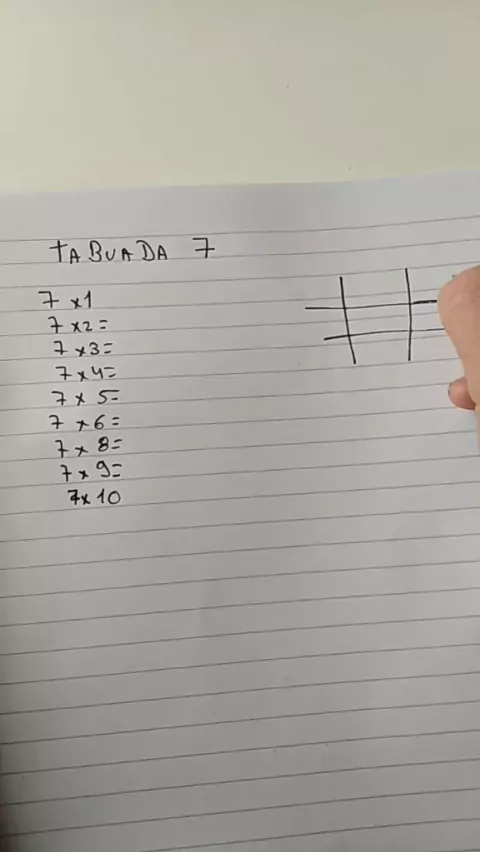 TABUADA 7
7 x 1
7 x 2 =
7 x 3 =
7 x 4 =
7 x 5 =
7 x 6 =
7 x 8 =
7 x 9 =
7 x 10